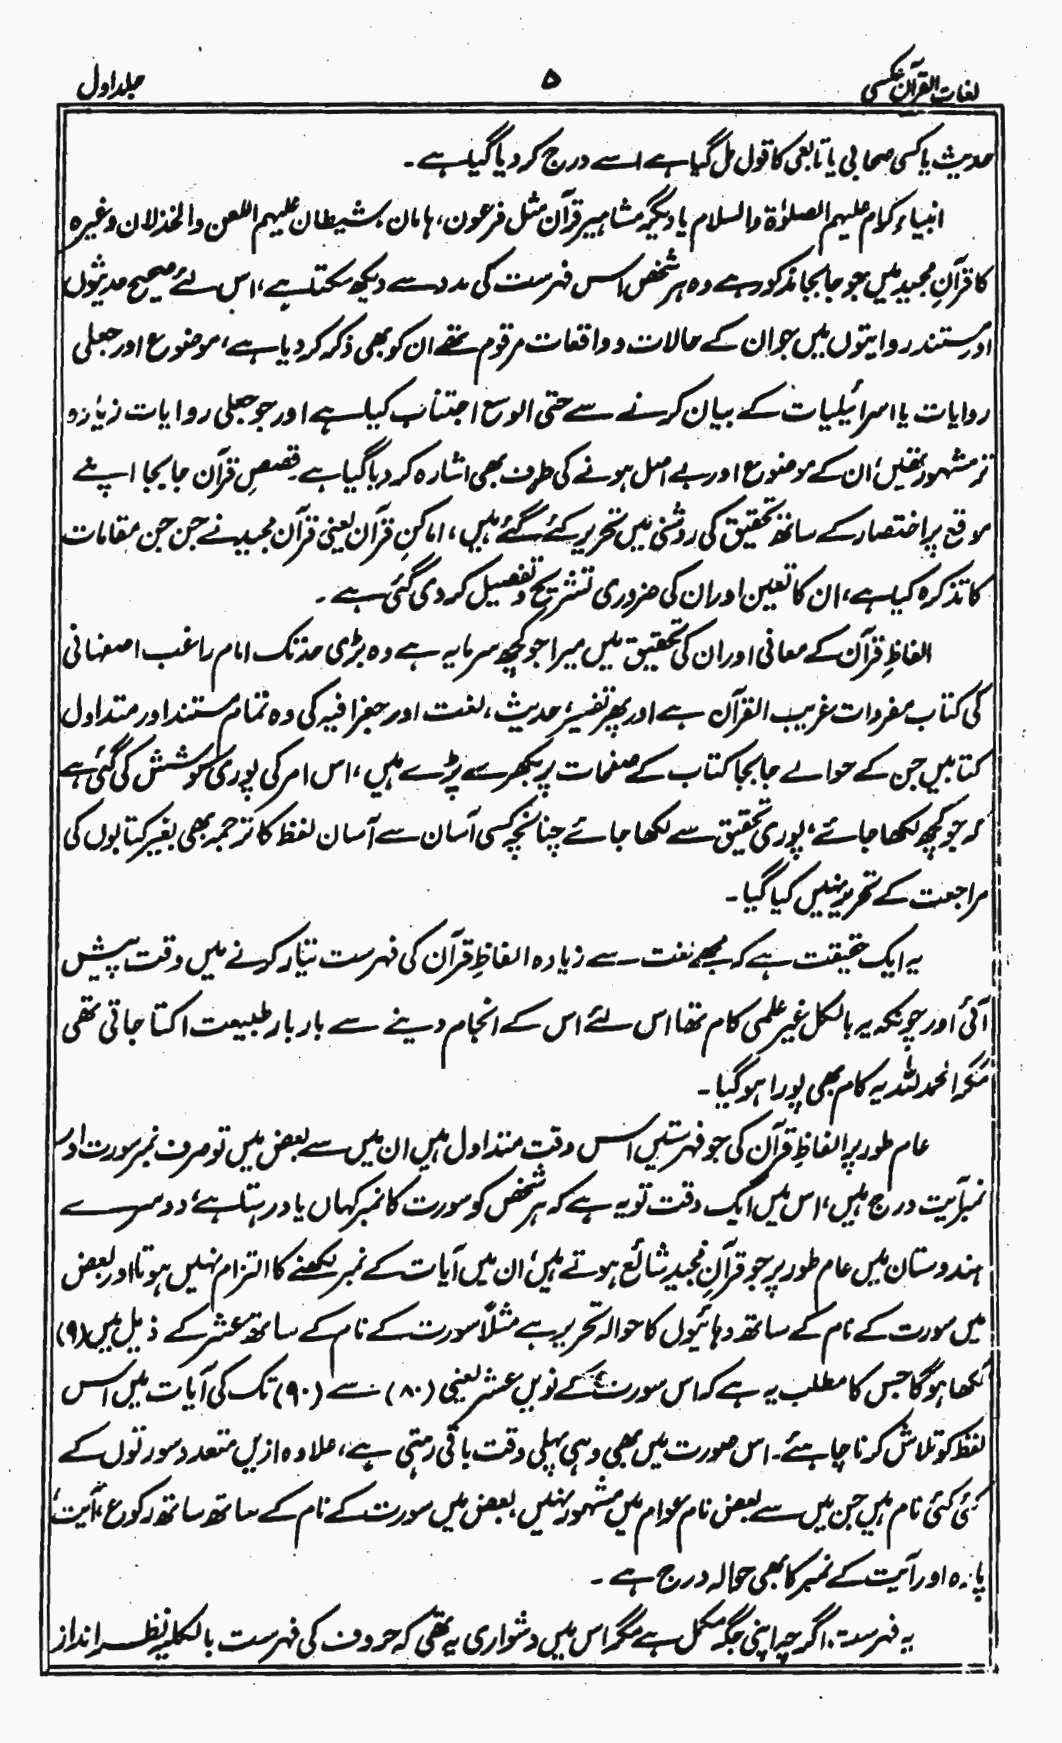 لغات القرآن عکسی
۵
جلد اول
حدیث یا کسی صحابی یا تابعی کا قول مل گیا ہے اسے درج کر دیا گیا ہے۔
انبیاء کرام علیہم الصلوٰۃ والسلام یا دیگر مشاہیر قرآن مثل فرعون، ہامان، شیطان علیہم اللعن والخذلان وغیرہ
کا قرآنِ مجید میں جو جابجا مذکور ہے وہ ہر شخص اس فہرست کی مدد سے دیکھ سکتا ہے، اس لئے صحیح حدیثوں
اور مستند روایتوں میں جو ان کے حالات و واقعات مرقوم تھے ان کو بھی ذکر کر دیا ہے، موضوع اور جعلی
روایات یا اسرائیلیات کے بیان کرنے سے حتی الوسع اجتناب کیا ہے اور جو جعلی روایات زیادہ
تر مشہور تھیں، ان کے موضوع اور بے اصل ہونے کی طرف بھی اشارہ کر دیا گیا ہے۔ قصصِ قرآن جابجا اپنے
موقع پر اختصار کے ساتھ تحقیق کی روشنی میں تحریر کئے گئے ہیں، اماکنِ قرآن یعنی قرآن مجید نے جن جن مقامات
کا تذکرہ کیا ہے، ان کا تعین اور ان کی ضروری تشریح و تفصیل کر دی گئی ہے۔
الفاظِ قرآن کے معانی اور ان کی تحقیق میں میرا جو کچھ سرمایہ ہے وہ بڑی حد تک امام راغب اصفہانی
کی کتاب مفردات غریب القرآن ہے اور پھر تفسیر، حدیث، لغت اور جغرافیہ کی وہ تمام مستند اور متداول
کتابیں جن کے حوالے جابجا کتاب کے صفحات پر بکھرے پڑے ہیں، اس امر کی پوری کوشش کی گئی ہے
کہ جو کچھ لکھا جائے، پوری تحقیق سے لکھا جائے چنانچہ کسی آسان سے آسان لفظ کا ترجمہ بھی بغیر کتابوں کی
مراجعت کے تحریر نہیں کیا گیا۔
یہ ایک حقیقت ہے کہ مجھے لغت سے زیادہ الفاظِ قرآن کی فہرست تیار کرنے میں دقت پیش
آئی اور چونکہ یہ بالکل غیر علمی کام تھا اس لئے اس کے انجام دینے سے بار بار طبیعت اکتا جاتی تھی
مگر الحمد للہ یہ کام بھی پورا ہو گیا۔
عام طور پر الفاظِ قرآن کی جو فہرستیں اس وقت متداول ہیں ان میں سے بعض میں تو صرف نمبر سورت اور
نمبر آیت درج ہیں، اس میں ایک دقت تو یہ ہے کہ ہر شخص کو سورت کا نمبر کہاں یاد رہتا ہے، دوسرے
ہندوستان میں عام طور پر جو قرآنِ مجید شائع ہوتے ہیں، ان میں آیات کے نمبر لکھنے کا التزام نہیں ہوتا اور بعض
میں سورت کے نام کے ساتھ دہائیوں کا حوالہ تحریر ہے مثلاً سورت کے نام کے ساتھ عشر کے ذیل میں (۹)
لکھا ہو گا جس کا مطلب یہ ہے کہ اس سورت کے نویں عشر یعنی (۸۰) سے (۹۰) تک کی آیات میں اس
لفظ کو تلاش کرنا چاہئے۔ اس صورت میں بھی وہی پہلی دقت باقی رہتی ہے، علاوہ ازیں متعدد سورتوں کے
کئی کئی نام ہیں جن میں سے بعض نام عوام میں مشہور نہیں، بعض میں سورت کے نام کے ساتھ ساتھ رکوع، آیت،
پارہ اور آیت کے نمبر کا بھی حوالہ درج ہے۔
یہ فہرست اگرچہ اپنی جگہ مکمل ہے مگر اس میں دشواری یہ تھی کہ حروف کی فہرست بالکلیہ نظر انداز